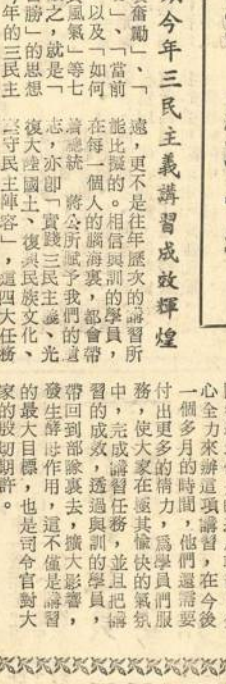 今年三民主義講習成效輝煌
奮勵」、「
」、「當前
以及「如何
風氣」等七
之,就是「
勝」的思想
年的三民主
遠,更不是往年歷次的講習所
能比擬的。相信與訓的學員,
在每一個人的腦海裏,都會帶
著總統 蔣公所賦予我們的遺
志,亦即「實踐三民主義、光
復大陸國土、復興民族文化、
堅守民主陣容」,這四大任務
心全力來辦這項講習,在今後
一個多月的時間,他們還需要
付出更多的精力,爲學員們服
務,使大家在極其愉快的氣氛
中,完成講習任務,並且把講
習的成效,透過與訓的學員,
帶回到部隊裏去,擴大影響,
發生酵母作用,這不僅是講習
的最大目標,也是司令官對大
家的殷切期許。